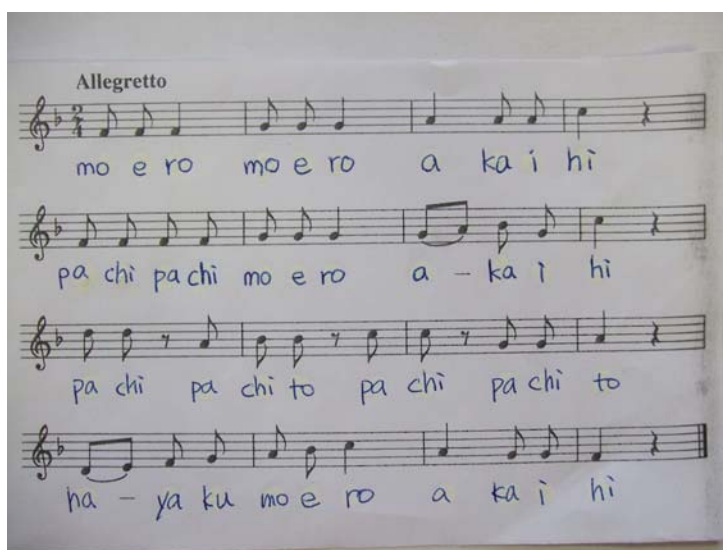 Allegretto
2
4
mo e ro mo e ro a ka i hi
pa chi pa chi mo e ro a – ka i hi
pa chi pa chi to pa chi pa chi to
ha – ya ku mo e ro a ka i hi